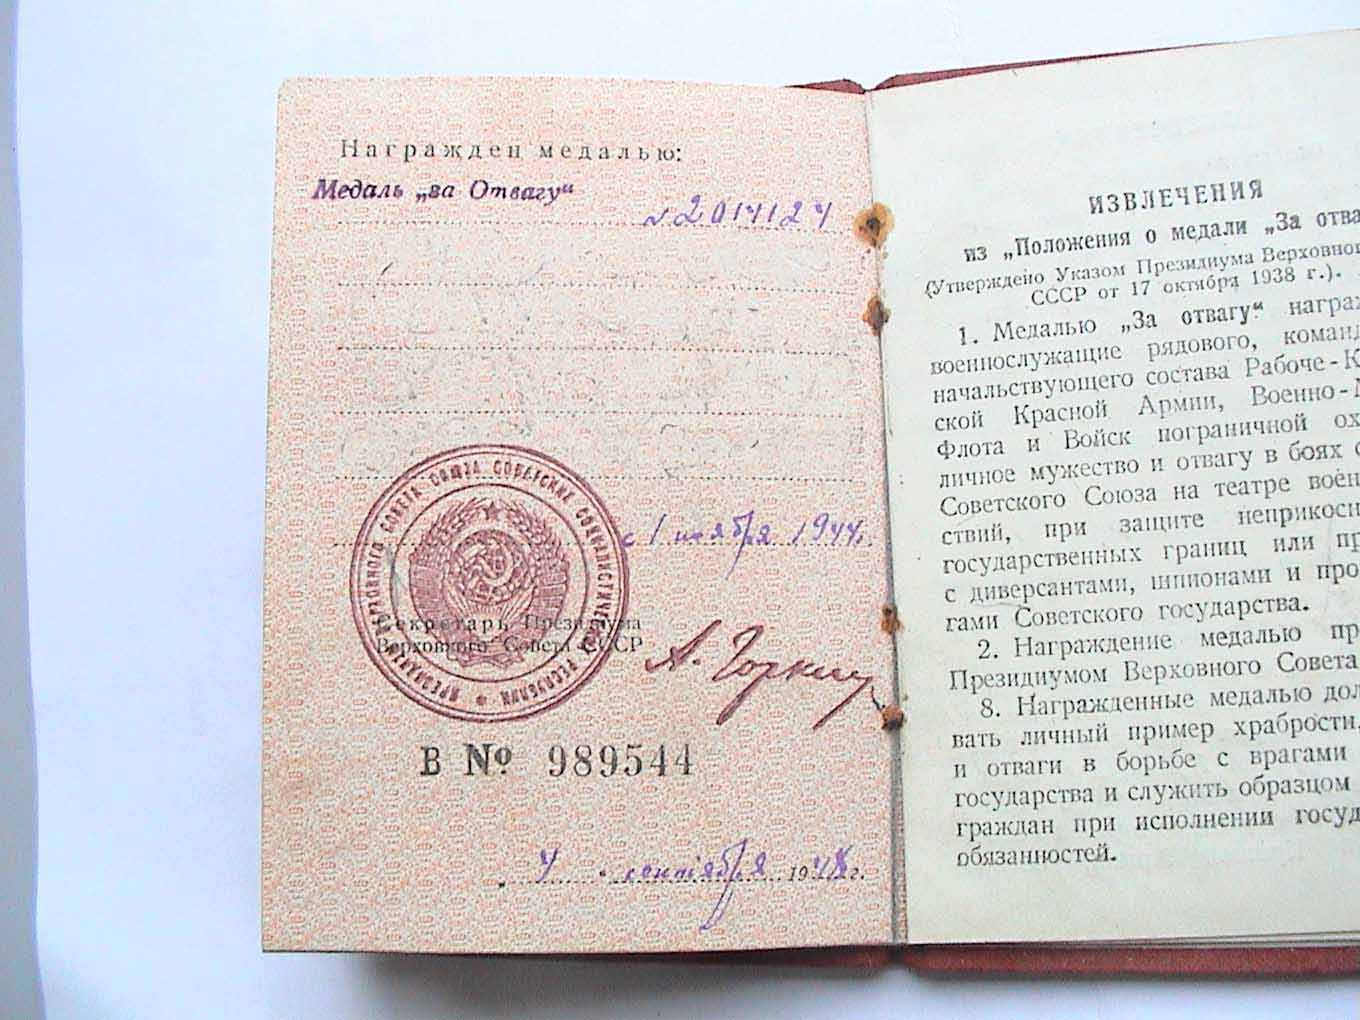 Награжден медалью:
Медаль „за Отвагу“
№ 2014124
с 1 ноября 1944г.
ПРЕЗИДИУМ ВЕРХОВНОГО СОВЕТА СОЮЗА СОВЕТСКИХ СОЦИАЛИСТИЧЕСКИХ РЕСПУБЛИК
Секретарь Президиума
Верховного Совета СССР
А. Горкин
В № 989544
„4 “ сентября 1948г.
ИЗВЛЕЧЕНИЯ
из „Положения о медали „За отва
(Утверждено Указом Президиума Верховног
СССР от 17 октября 1938 г.).
1. Медалью „За отвагу“ награж
военнослужащие рядового, команд
начальствующего состава Рабоче-К
ской Красной Армии, Военно-М
Флота и Войск пограничной ох
личное мужество и отвагу в боях с
Советского Союза на театре воен
ствий, при защите неприкосн
государственных границ или пр
с диверсантами, шпионами и про
гами Советского государства.
2. Награждение медалью пр
Президиумом Верховного Совета
8. Награжденные медалью дол
вать личный пример храбрости,
и отваги в борьбе с врагами
государства и служить образцом
граждан при исполнении госуд
обязанностей.